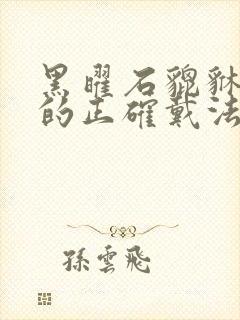 黑曜石貔貅
的正確戴法
孫雲飛